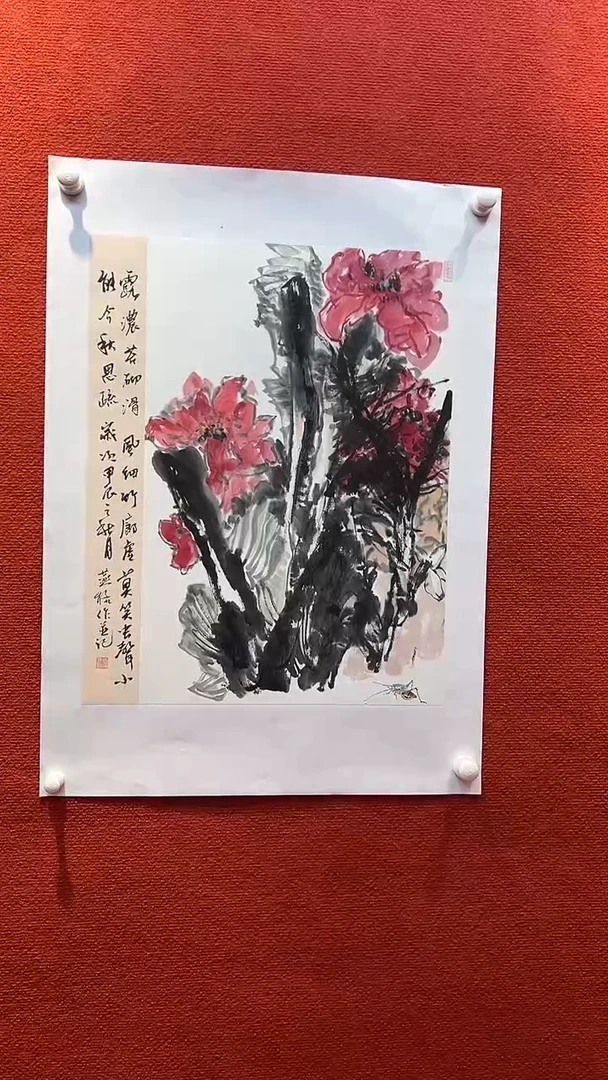 露濃苔砌滑風細竹廊虛莫笑聲小
能令秋思疏歲次甲辰之秋月燕作並記